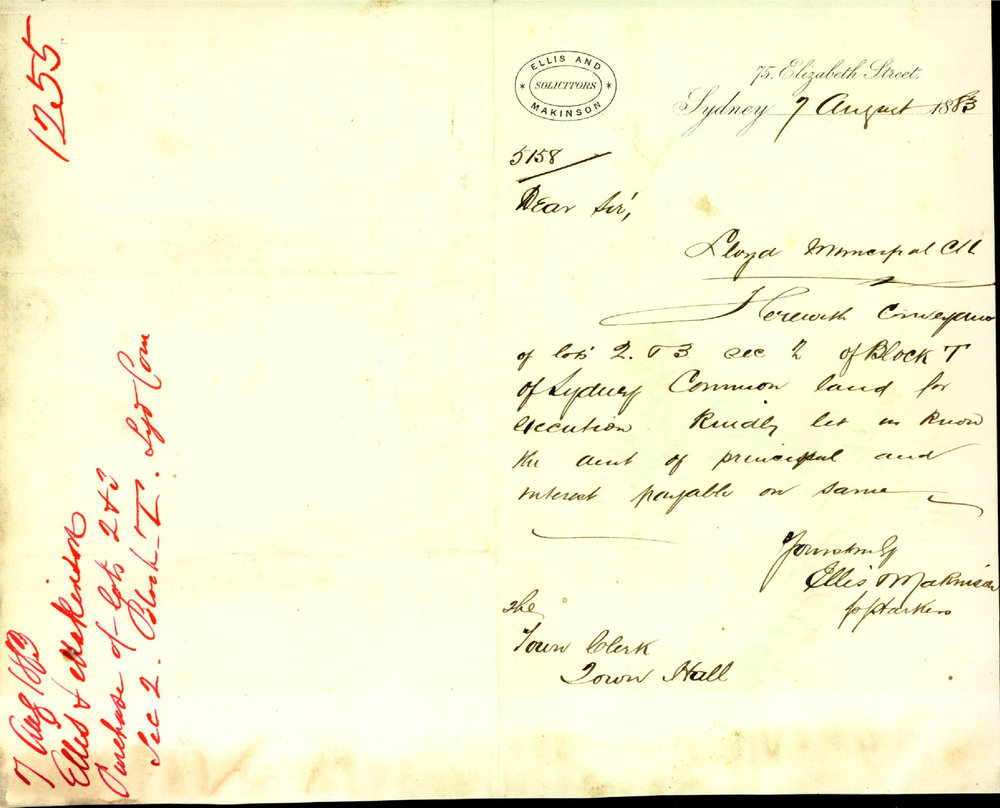 1255
7 Aug 1883
Ellis & Makinson
Purchase of Lots 2 & 3
Sec 2. Block T. Syd Com
ELLIS AND
SOLICITORS
MAKINSON
75. Elizabeth Street.
Sydney 7 August 1883
5158
Dear Sir,
Lloyd Municipal Cll
Herewith Conveyance
of lots 2. & 3 sec 2 of Block T
of Sydney Common land for
execution. Kindly let us know
the amt of principal and
interest payable on same
Yours truly
Ellis & Makinson
The
Town Clerk
Town Hall